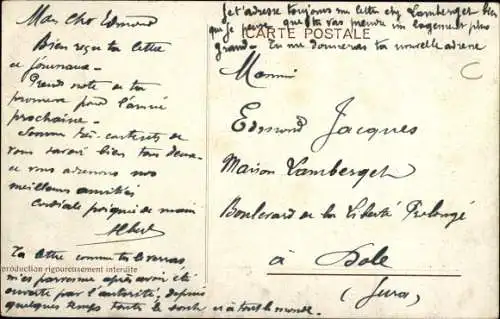 Mon cher Edmond
Bien reçu ta lettre
ce journaux.
Prends note de ta
promesse pour l'année
prochaine.
Sommes très contents de
vous savoir bien tous deux
et vous adressons nos
meilleures amitiés
Cordiale poignée de main
Albert
Ta lettre comme tu le verras
m'est parvenue après avoir été
ouverte par l'autorité, depuis
quelques temps toute le sont et à tout le monde.
production rigoureusement interdite
Je t'adresse toujours ma lettre chez Lamberget bien
que je pense que tu vas prendre un logement plus
grand. Tu me donneras ta nouvelle adresse
CARTE POSTALE
Monsieur
Edmond Jacques
Maison Lamberget
Boulevard de la Liberté Prolongé
à Dole
(Jura)